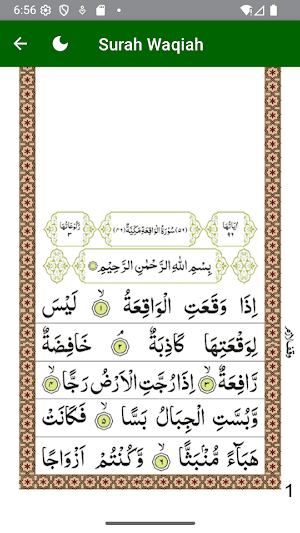 6:56
Surah Waqiah
رُكُوْعَاتُهَا ٣ (٥٦) سُوْرَةُ الْوَاقِعَةِ مَكِّيَّةٌ (٤٦) اٰيَاتُهَا ٩٦
بِسْمِ اللّٰهِ الرَّحْمٰنِ الرَّحِيْمِ
اِذَا وَقَعَتِ الْوَاقِعَةُ ۙ‏ ١ لَيْسَ
لِوَقْعَتِهَا كَاذِبَةٌ ۘ‏ ٢ خَافِضَةٌ
رَّافِعَةٌ ۙ‏ ٣ اِذَا رُجَّتِ الْاَرْضُ رَجًّا ۙ‏ ٤
وَّبُسَّتِ الْجِبَالُ بَسًّا ۙ‏ ٥ فَكَانَتْ
هَبَآءً مُّنْۢبَثًّا ۙ‏ ٦ وَّكُنْتُمْ اَزْوَاجًا
1